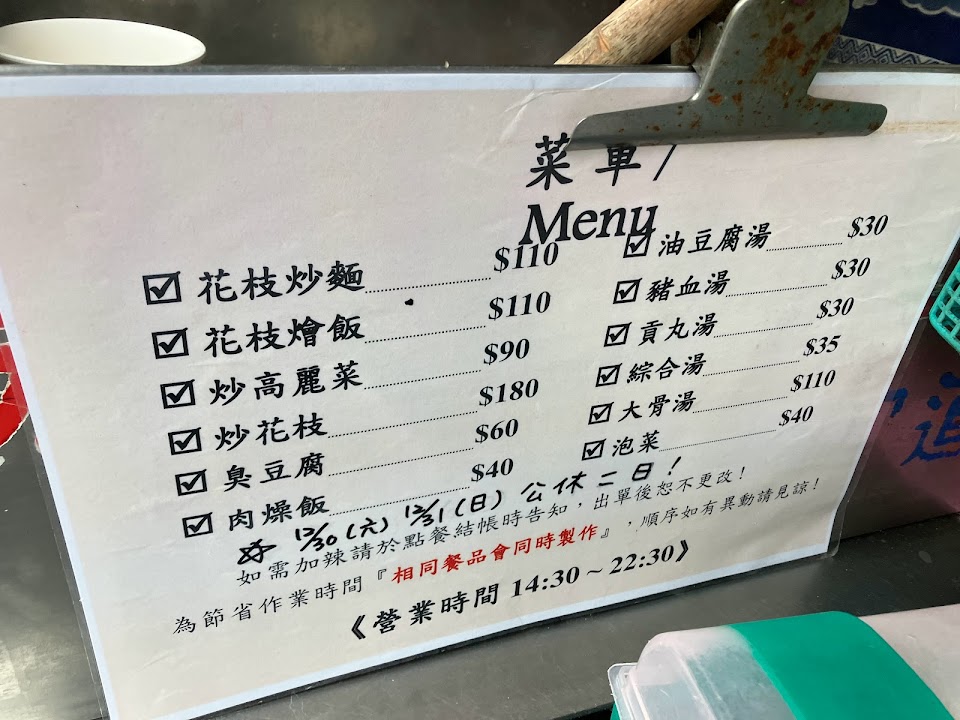 菜單/
Menu
☑ 花枝炒麵 $110
☑ 花枝燴飯 $110
☑ 炒高麗菜 $90
☑ 炒花枝 $180
☑ 臭豆腐 $60
☑ 肉燥飯 $40
☑ 油豆腐湯 $30
☑ 豬血湯 $30
☑ 貢丸湯 $30
☑ 綜合湯 $35
☑ 大骨湯 $110
☑ 泡菜 $40
12/30(六) 12/31(日) 公休二日!
如需加辣請於點餐結帳時告知,出單後恕不更改!
為節省作業時間『相同餐品會同時製作』,順序如有異動請見諒!
《營業時間 14:30~22:30》